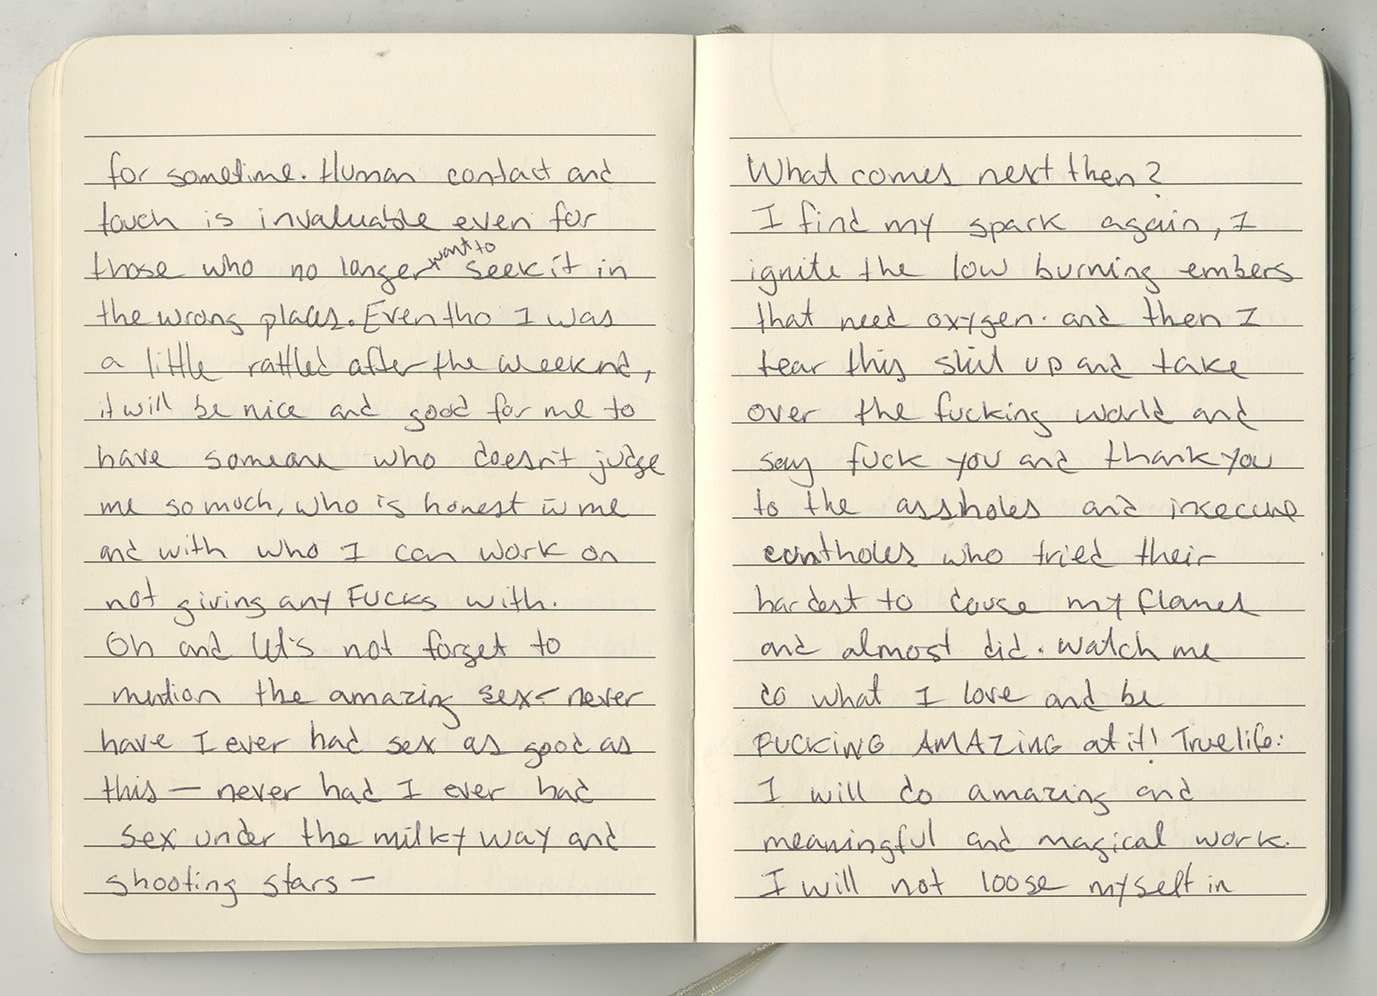 for sometime. Human contact and
touch is invaluable even for
those who no longer want to seek it in
the wrong places. Eventho I was
a little rattled after the weeknd,
it will be nice and good for me to
have someone who doesn't judge
me so much, who is honest w me
and with who I can work on
not giving any FUCKS with.
Oh and let's not forget to
mention the amazing sex - never
have I ever had sex as good as
this — never had I ever had
sex under the milky way and
shooting stars —
What comes next then?
I find my spark again, I
ignite the low burning embers
that need oxygen. and then I
tear this shit up and take
over the fucking world and
say fuck you and thank you
to the assholes and insecure
who tried their
hardest to douse my flames
and almost did. Watch me
do what I love and be
FUCKING AMAZING at it! True life:
I will do amazing and
meaningful and magical work.
I will not loose myself in